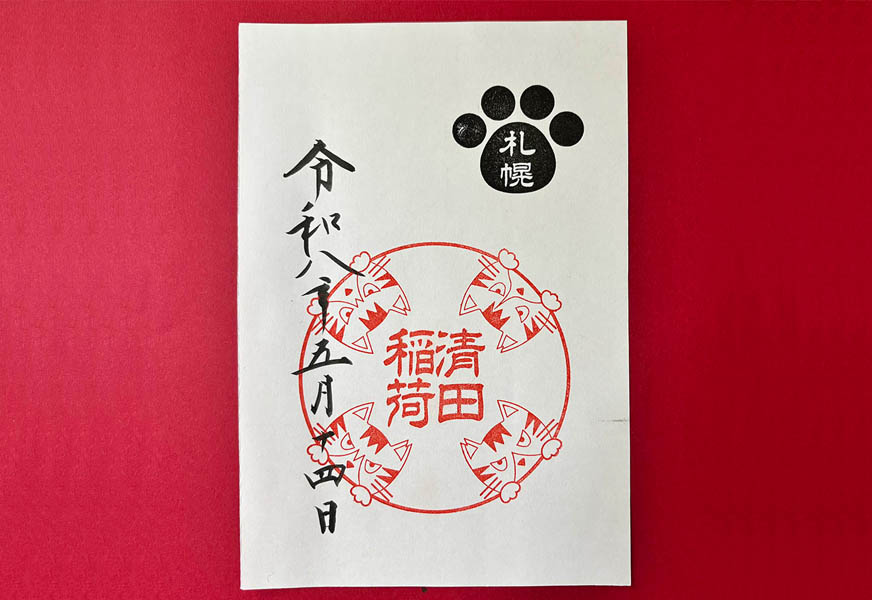 札幌
清田
稲荷
令和八年五月十四日